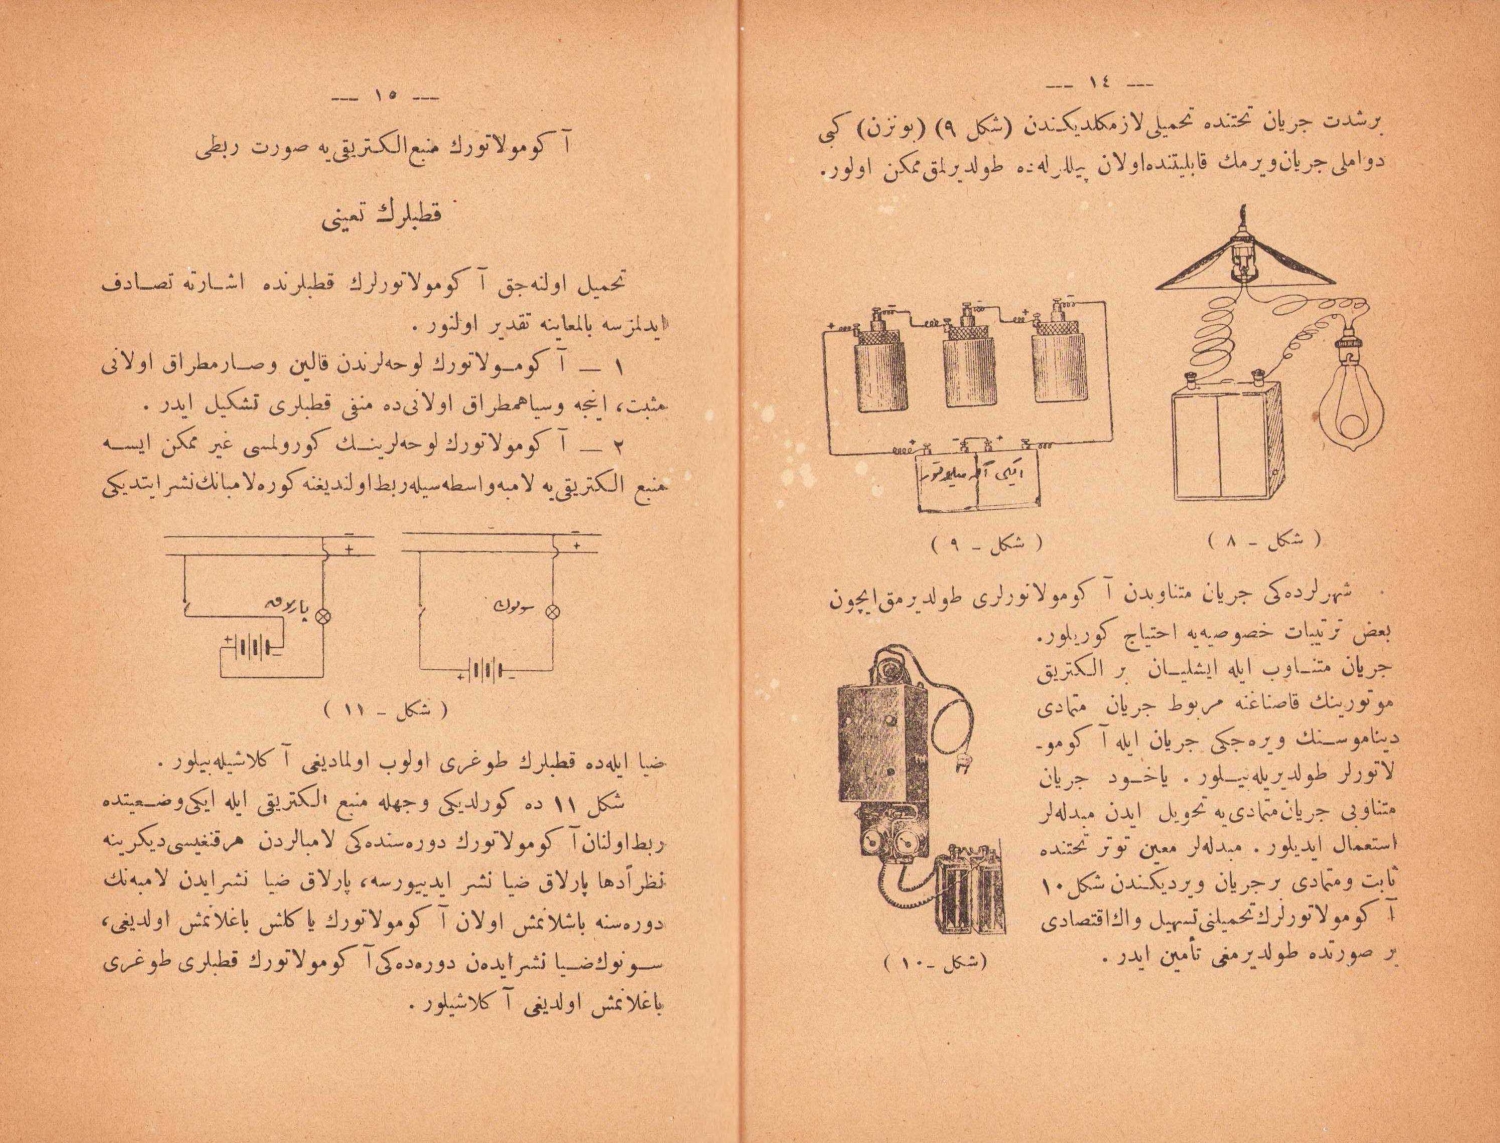 — ١٤ —
برشدت جريان تحتنده تحميلى لازمكلديكندن (شكل ٩) (بونزن) كبى
دواملى جريان ويرمك قابليتنده اولان پيللرله ده طولديرلمق ممكن اولور.
ايكى آكومولاتور
( شكل ـ ٨ )
( شكل ـ ٩ )
شهرلرده كى جريان متناوبدن آ كومولاتورلرى طولديرمق ايچون
بعض ترتيبات خصوصيه يه احتياج كوريلور.
جريان متنـاوب ايله ايشليـان بر الكتريق
موتورينك قاصناغنه مربوط جريان متمادى
ديناموسـنك ويره جكى جريان ايله آ كومو-
لاتورلر طولديريله بيـلور . ياخـود جريان
متناوبى جريان متمادى يه تحويل ايدن مبدله لر
استعمال ايديلور . مبدله لر معين توتر تحتنده
ثابت ومتمادى بر جريان ويرديكندن شكل ١٠
آ كومولاتورلرك تحميلنى تسهيل واك اقتصادى
بر صورتده طولديرمغى تأمين ايدر .
(شكل ـ ١٠ )
— ١٥ —
آ كومولاتورك منبع الكتريقى يه صورت ربطى
قطبلرك تعينى
تحميل اولنه جق آ كومولاتورلرك قطبلرنده اشـارته تصـادف
ايدلمزسه بالمعاينه تقدير اولنور .
١ — آ كومـولاتورك لوحه لرندن قالين وصـارمطراق اولانى
مثبت، اينجه وسياهمطراق اولانى ده منفى قطبلرى تشكيل ايدر .
٢ — آ كومولاتورك لوحه لرينـك كورولمسى غير ممكن ايسـه
منبع الكتريقى يه لامبه واسطه سيله ربط اولنديغنه كوره لامبانك نشر ايتديكى
پارلاق
سونوك
( شكل ـ ١١ )
ضيا ايله ده قطبلرك طوغرى اولوب اولماديغى آ كلاشيله بيلور .
شكل ١١ ده كورلديكى وجهله منبع الكتريقى ايله ايكى وضـعيتده
ربط اولنان آ كومولاتورك دوره سنده كى لامبالردن هرقنغيسى ديكرينه
نظراً دها پارلاق ضيا نشر ايدييورسه، پارلاق ضيا نشرايدن لامبه نك
دوره سنه باشلانمش اولان آ كومولاتورك ياكلش باغلانمش اولديغى،
سـونوك ضـيا نشرايده ن دوره ده كى آ كومولاتورك قطبلرى طوغرى
باغلانمش اولديغى آ كلاشيلور .